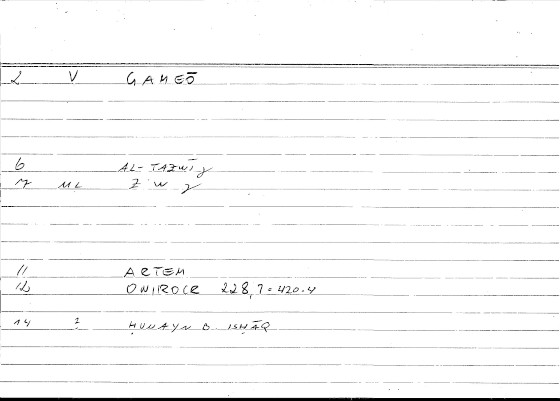 2 V GAMEŌ
6 AL-TAZWĪǧ
7 ML Z W ǧ
11 ARTEM
12 ONIROCR 228,7 = 420.4
14 ? ḤUNAYN B. ISḤĀQ